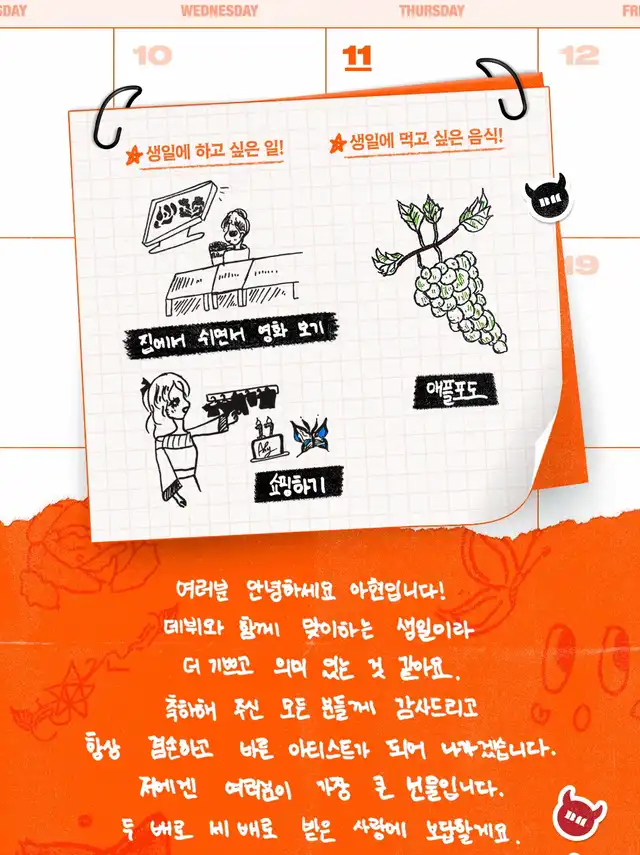 SDAY WEDNESDAY THURSDAY FR
10 11 12
생일에 하고 싶은 일!
생일에 먹고 싶은 음식!
19
집에서 쉬면서 영화 보기
애플포도
쇼핑하기
여러분 안녕하세요 아현입니다!
데뷔와 함께 맞이하는 생일이라
더 기쁘고 의미 있는 것 같아요.
축하해 주신 모든 분들께 감사드리고
항상 겸손하고 바른 아티스트가 되어 나가겠습니다.
저에겐 여러분이 가장 큰 선물입니다.
두 배로 세 배로 받은 사랑에 보답할게요.